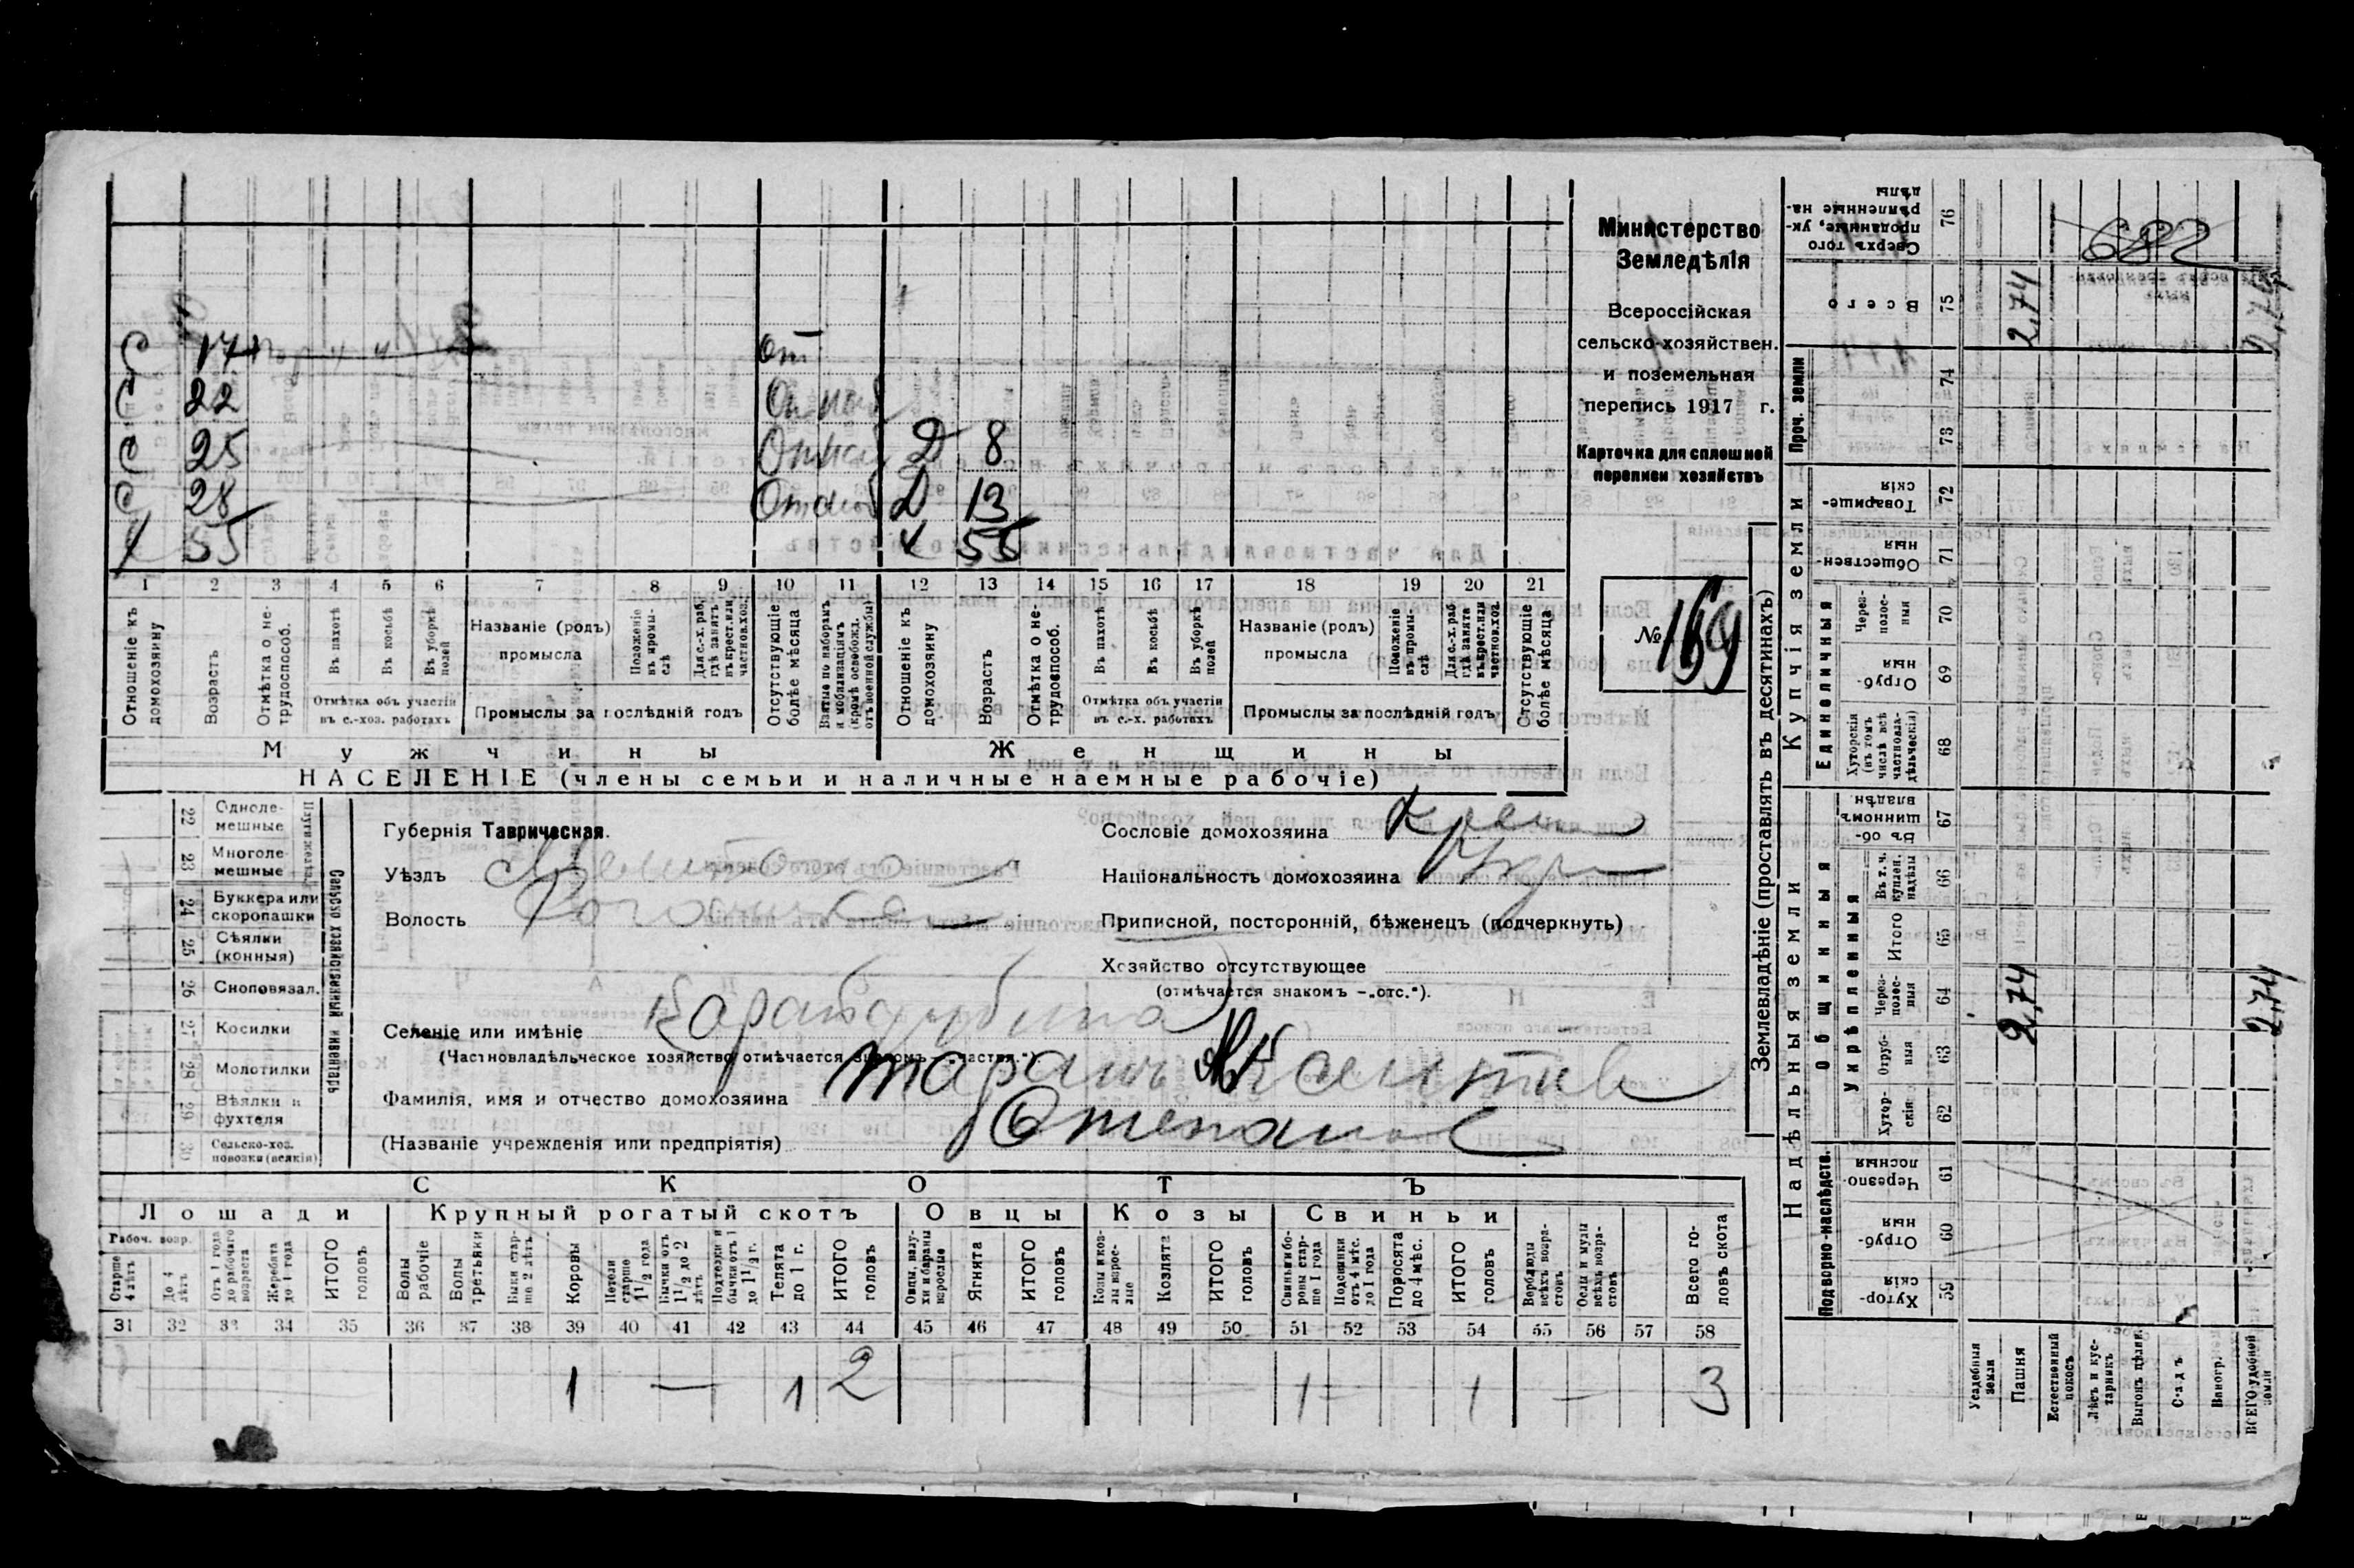 С 17 От
С 22
С 25 Д 8
С 28 Д 13
Х 55 Х 55
1 2 3 4 5 6 7 8 9 10 11 12 13 14 15 16 17 18 19 20 21
Отношеніе къ домохозяину
Возрастъ
Отмѣтка о не-трудоспособ.
Въ пахотѣ
Въ косьбѣ
Въ уборкѣ полей
Отмѣтка объ участіи въ с.-хоз. работахъ
Названіе (родъ) промысла
Положеніе въ промы-слѣ
Для с.-х. раб. гдѣ занятъ въ крест. или частнов. хоз.
Промыслы за послѣдній годъ
Отсутствующіе болѣе мѣсяца
Взятые по наборамъ и мобилизаціямъ (кромѣ освобожд. отъ военной службы)
Отношеніе къ домохозяину
Возрастъ
Отмѣтка о не-трудоспособ.
Въ пахотѣ
Въ косьбѣ
Въ уборкѣ полей
Отмѣтка объ участіи въ с.-х. работахъ
Названіе (родъ) промысла
Положеніе въ промы-слѣ
Для с.-х. раб. гдѣ занята въ крест. или частнов. хоз.
Промыслы за послѣдній годъ
Отсутствующіе болѣе мѣсяца
Мужчины Женщины
НАСЕЛЕНІЕ (члены семьи и наличные наемные рабочіе)
Министерство
Земледѣлія
Всероссійская
сельско-хозяйствен.
и поземельная
перепись 1917 г.
Карточка для сплошной
переписи хозяйствъ
№ 169
22 Одноле-мешные
23 Многоле-мешные
24 Буккера или скоропашки
25 Сѣялки (конныя)
26 Сноповязал.
27 Косилки
28 Молотилки
29 Вѣялки и фухтеля
30 Сельско-хоз. повозки (всякія)
Сельско хозяйственный инвентарь
Губернія Таврическая.
Уѣздъ
Волость
Селеніе или имѣніе
(Частновладѣльческое хозяйство отмѣчается знакомъ „частн.“)
Фамилія, имя и отчество домохозяина
(Названіе учрежденія или предпріятія)
Сословіе домохозяина Крест
Національность домохозяина Укр
Приписной, посторонній, бѣженецъ (подчеркнуть)
Хозяйство отсутствующее
(отмѣчается знакомъ —„отс.“).
СКОТЪ
Лошади Крупный рогатый скотъ Овцы Козы Свиньи
Рабоч. возр.
Старше 4 лѣтъ
До 4 лѣтъ
Отъ 1 года до рабочаго возраста
Жеребята до 1 года
ИТОГО головъ
Волы рабочіе
Волы третьяки
Быки стар-ше 2 лѣтъ
Коровы
Нетели старше 1 1/2 года
Бычки отъ 1 1/2 до 2 лѣтъ
Подтелки и бычки отъ 1 до 1 1/2 г.
Телята до 1 г.
ИТОГО головъ
Овцы, валу-хи и бараны взрослые
Ягнята
ИТОГО головъ
Козы и коз-лы взрос-лые
Козлята
ИТОГО головъ
Свиньи и бо-ровы стар-ше 1 года
Подсвинки отъ 4 мѣс. до 1 года
Поросята до 4 мѣс.
ИТОГО головъ
Верблюды всѣхъ возра-стовъ
Ослы и мулы всѣхъ возра-стовъ
Всего го-ловъ скота
31 32 33 34 35 36 37 38 39 40 41 42 43 44 45 46 47 48 49 50 51 52 53 54 55 56 57 58
1 — 1 2 1 1 — 3
Землевладѣніе (проставлять въ десятинахъ)
Купчія земли
Надѣльныя земли
Проч. земли
Единоличныя
Общинныя
Укрѣпленныя
Подворно-наслѣдств.
76 Сверхъ того проданные, ук-рѣпленные на-дѣлы
75 Всего
74
73
72 Товарище-скія
71 Обществен-ныя
70 Через-полос-ныя
69 Отруб-ныя
68 Хуторскія (въ томъ числѣ всѣ частновла-дѣльческія)
67 Въ об-щинномъ владѣн.
66 Въ т. ч. куплен. надѣлы
65 Итого
64 Через-полос-ныя
63 Отруб-ныя
62 Хутор-скія
61 Черезпо-лосныя
60 Отруб-ныя
59 Хутор-скія
Усадебныя земли
Пашня
Естественный покосъ
Лѣсъ и кус-тарникъ
Выгонъ дѣлик.
Садъ
Виногр.
ВСЕГО удобной земли
682
2,74 2,74
2,74 2,74